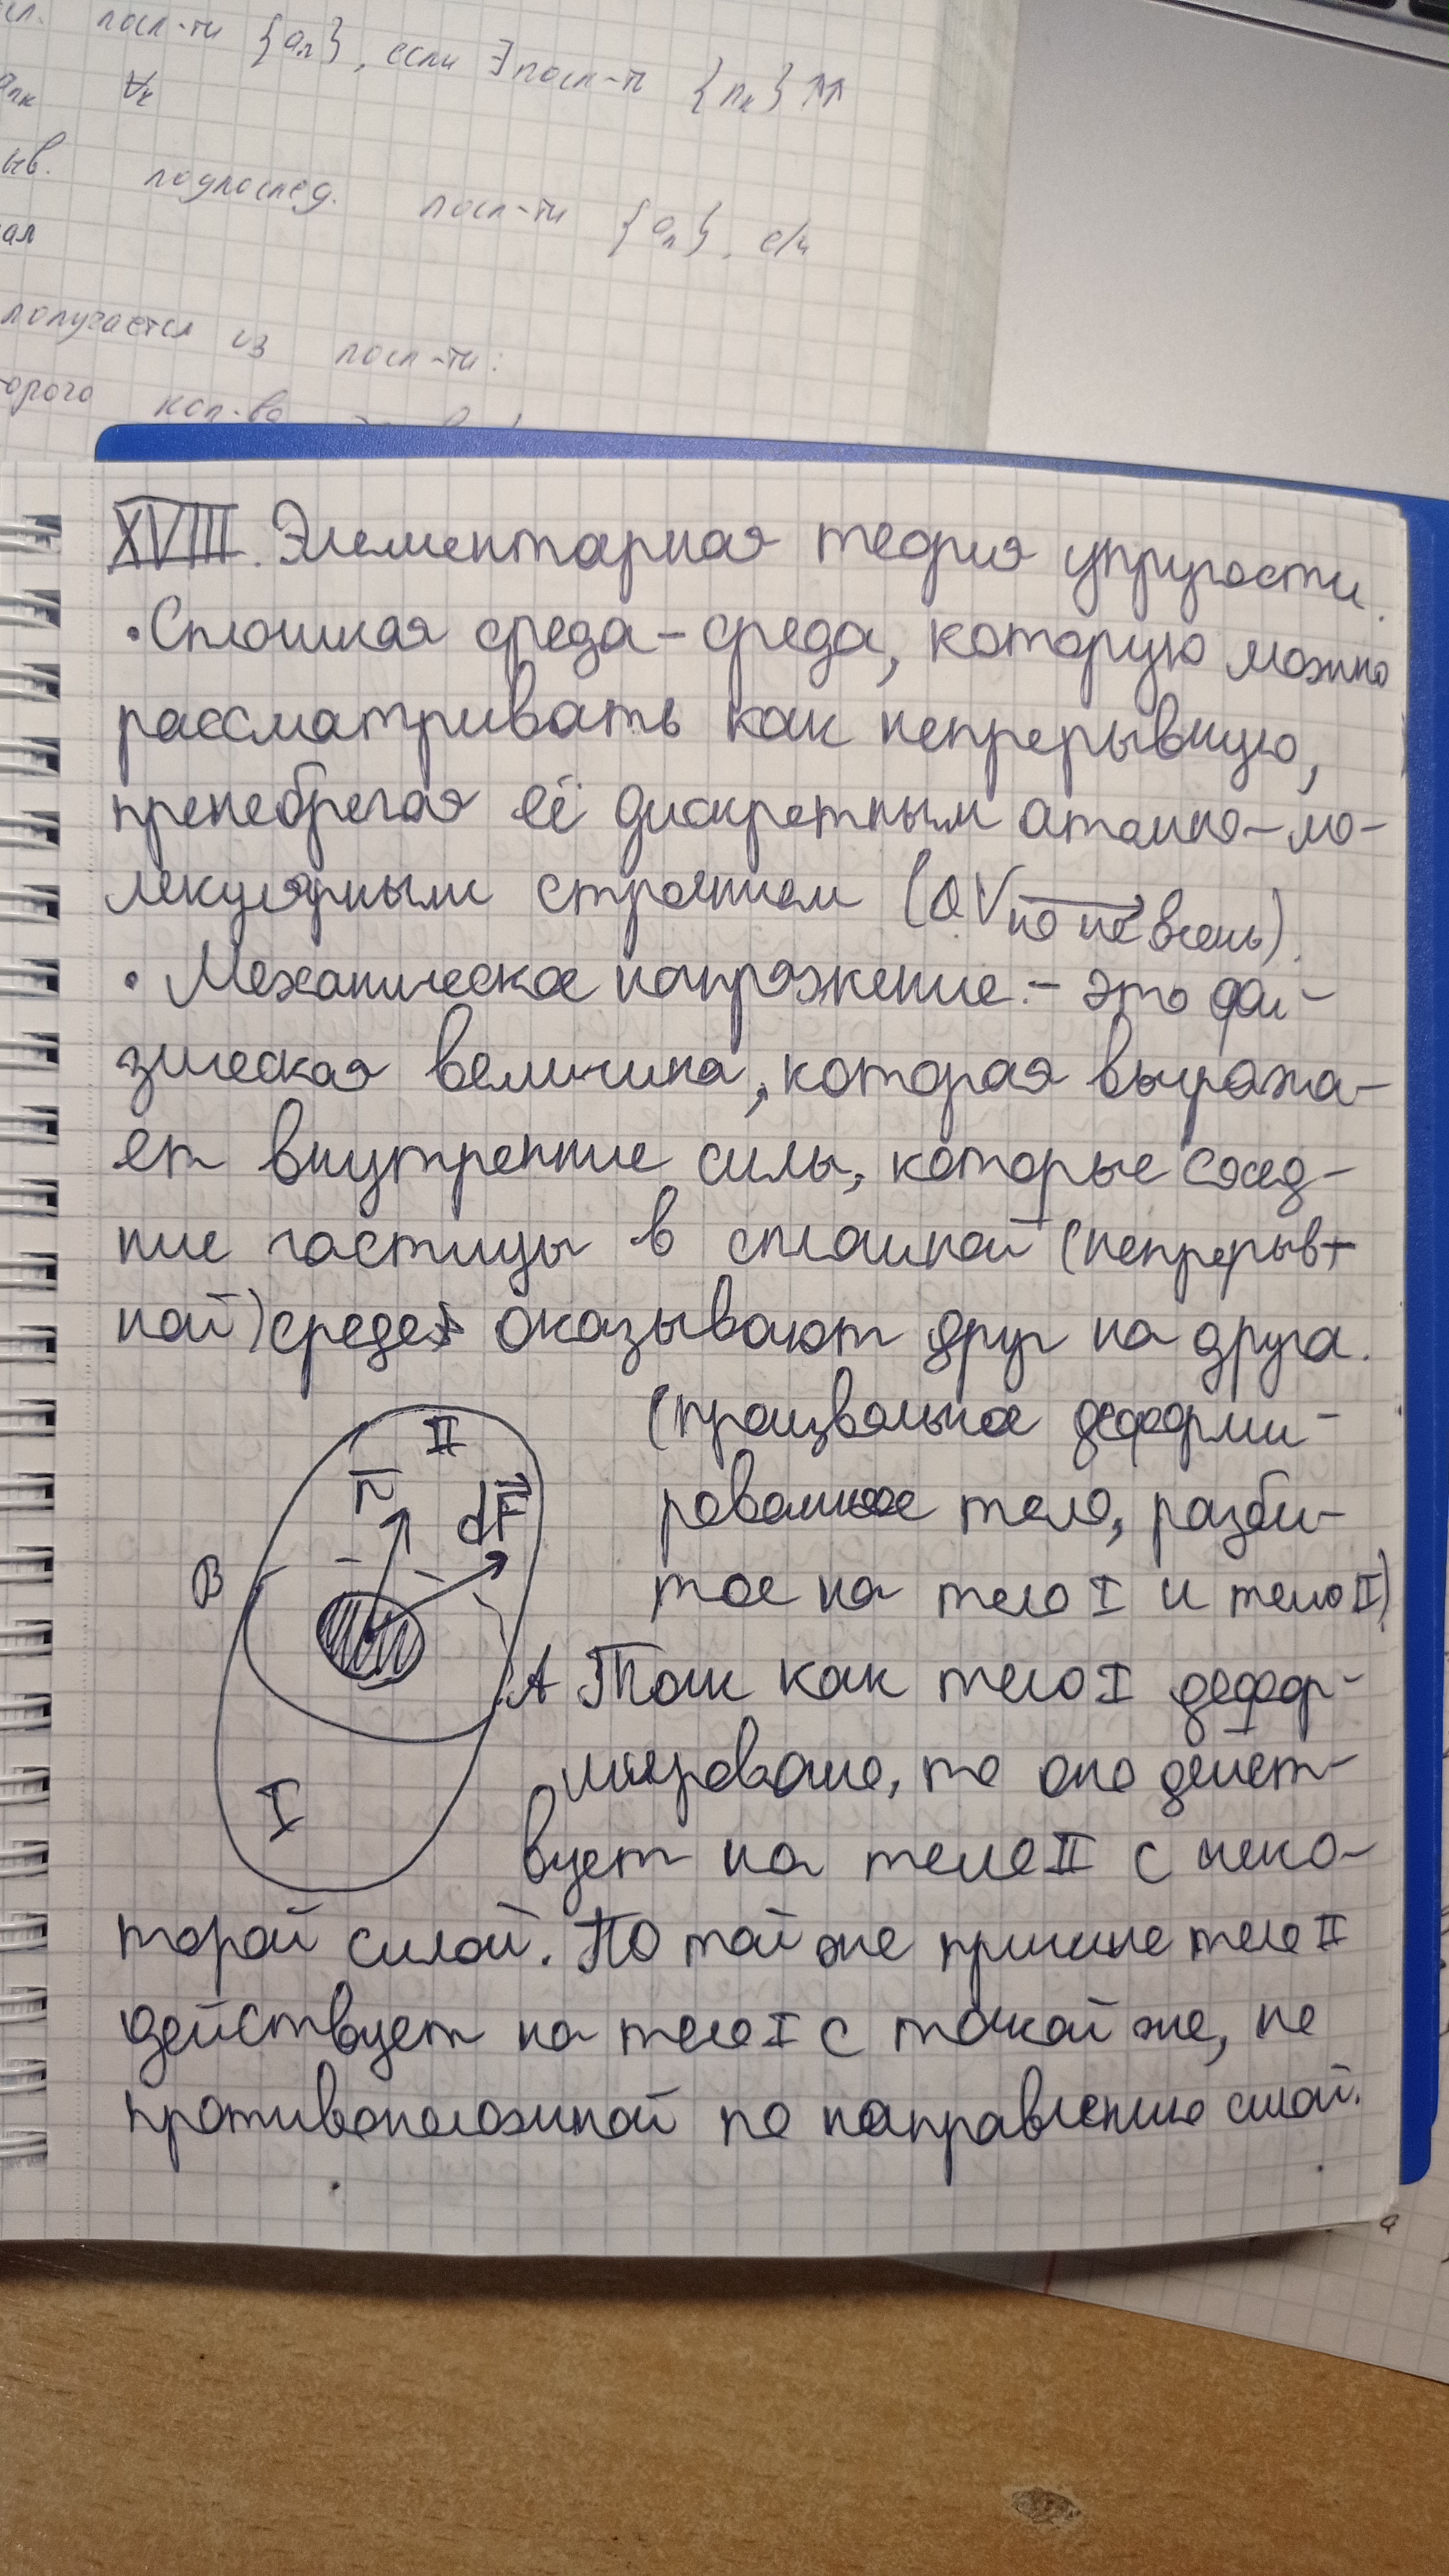 посл-ти {aₙ}, если ∃ посл-ть {nₖ}↑↑
∀k
подпослед. посл-ти {aₙ}, если
получается из посл-ти:
кол-ва
XVIII. Элементарная теория упругости.
• Сплошная среда – среда, которую можно
рассматривать как непрерывную,
пренебрегая её дискретным атомно-мо-
лекулярным строением (ΔV→0 не весь).
• Механическое напряжение – это фи-
зическая величина, которая выража-
ет внутренние силы, которые сосед-
ние частицы в сплошной (непрерыв-
ной) среде оказывают друг на друга.
(произвольное деформи-
рованное тело, разби-
тое на тело I и тело II)
II
n
dF
B
A
I
Так как тело I дефор-
мировано, то оно дейст-
вует на тело II с неко-
торой силой. По той же причине тело II
действует на тело I с такой же, но
противоположной по направлению силой.